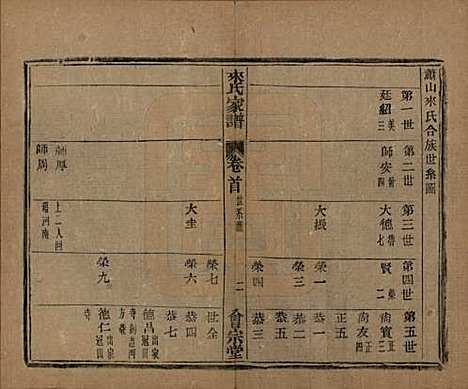 蕭山來氏合族世系圖
第一世
第二世
第三世
第四世
第五世
廷紹
師安
大德
賢
尚賓
尚友
正五
大振
榮一
恭一
恭五
榮三
恭二
榮四
恭三
來氏家譜
卷首
世系圖
二
會宗堂
榮七
世全
大圭
榮六
恭四
恭七
德昌
出家
榮九
德仁
出家
冠園
寺
師厚
上二人回
河南
師周